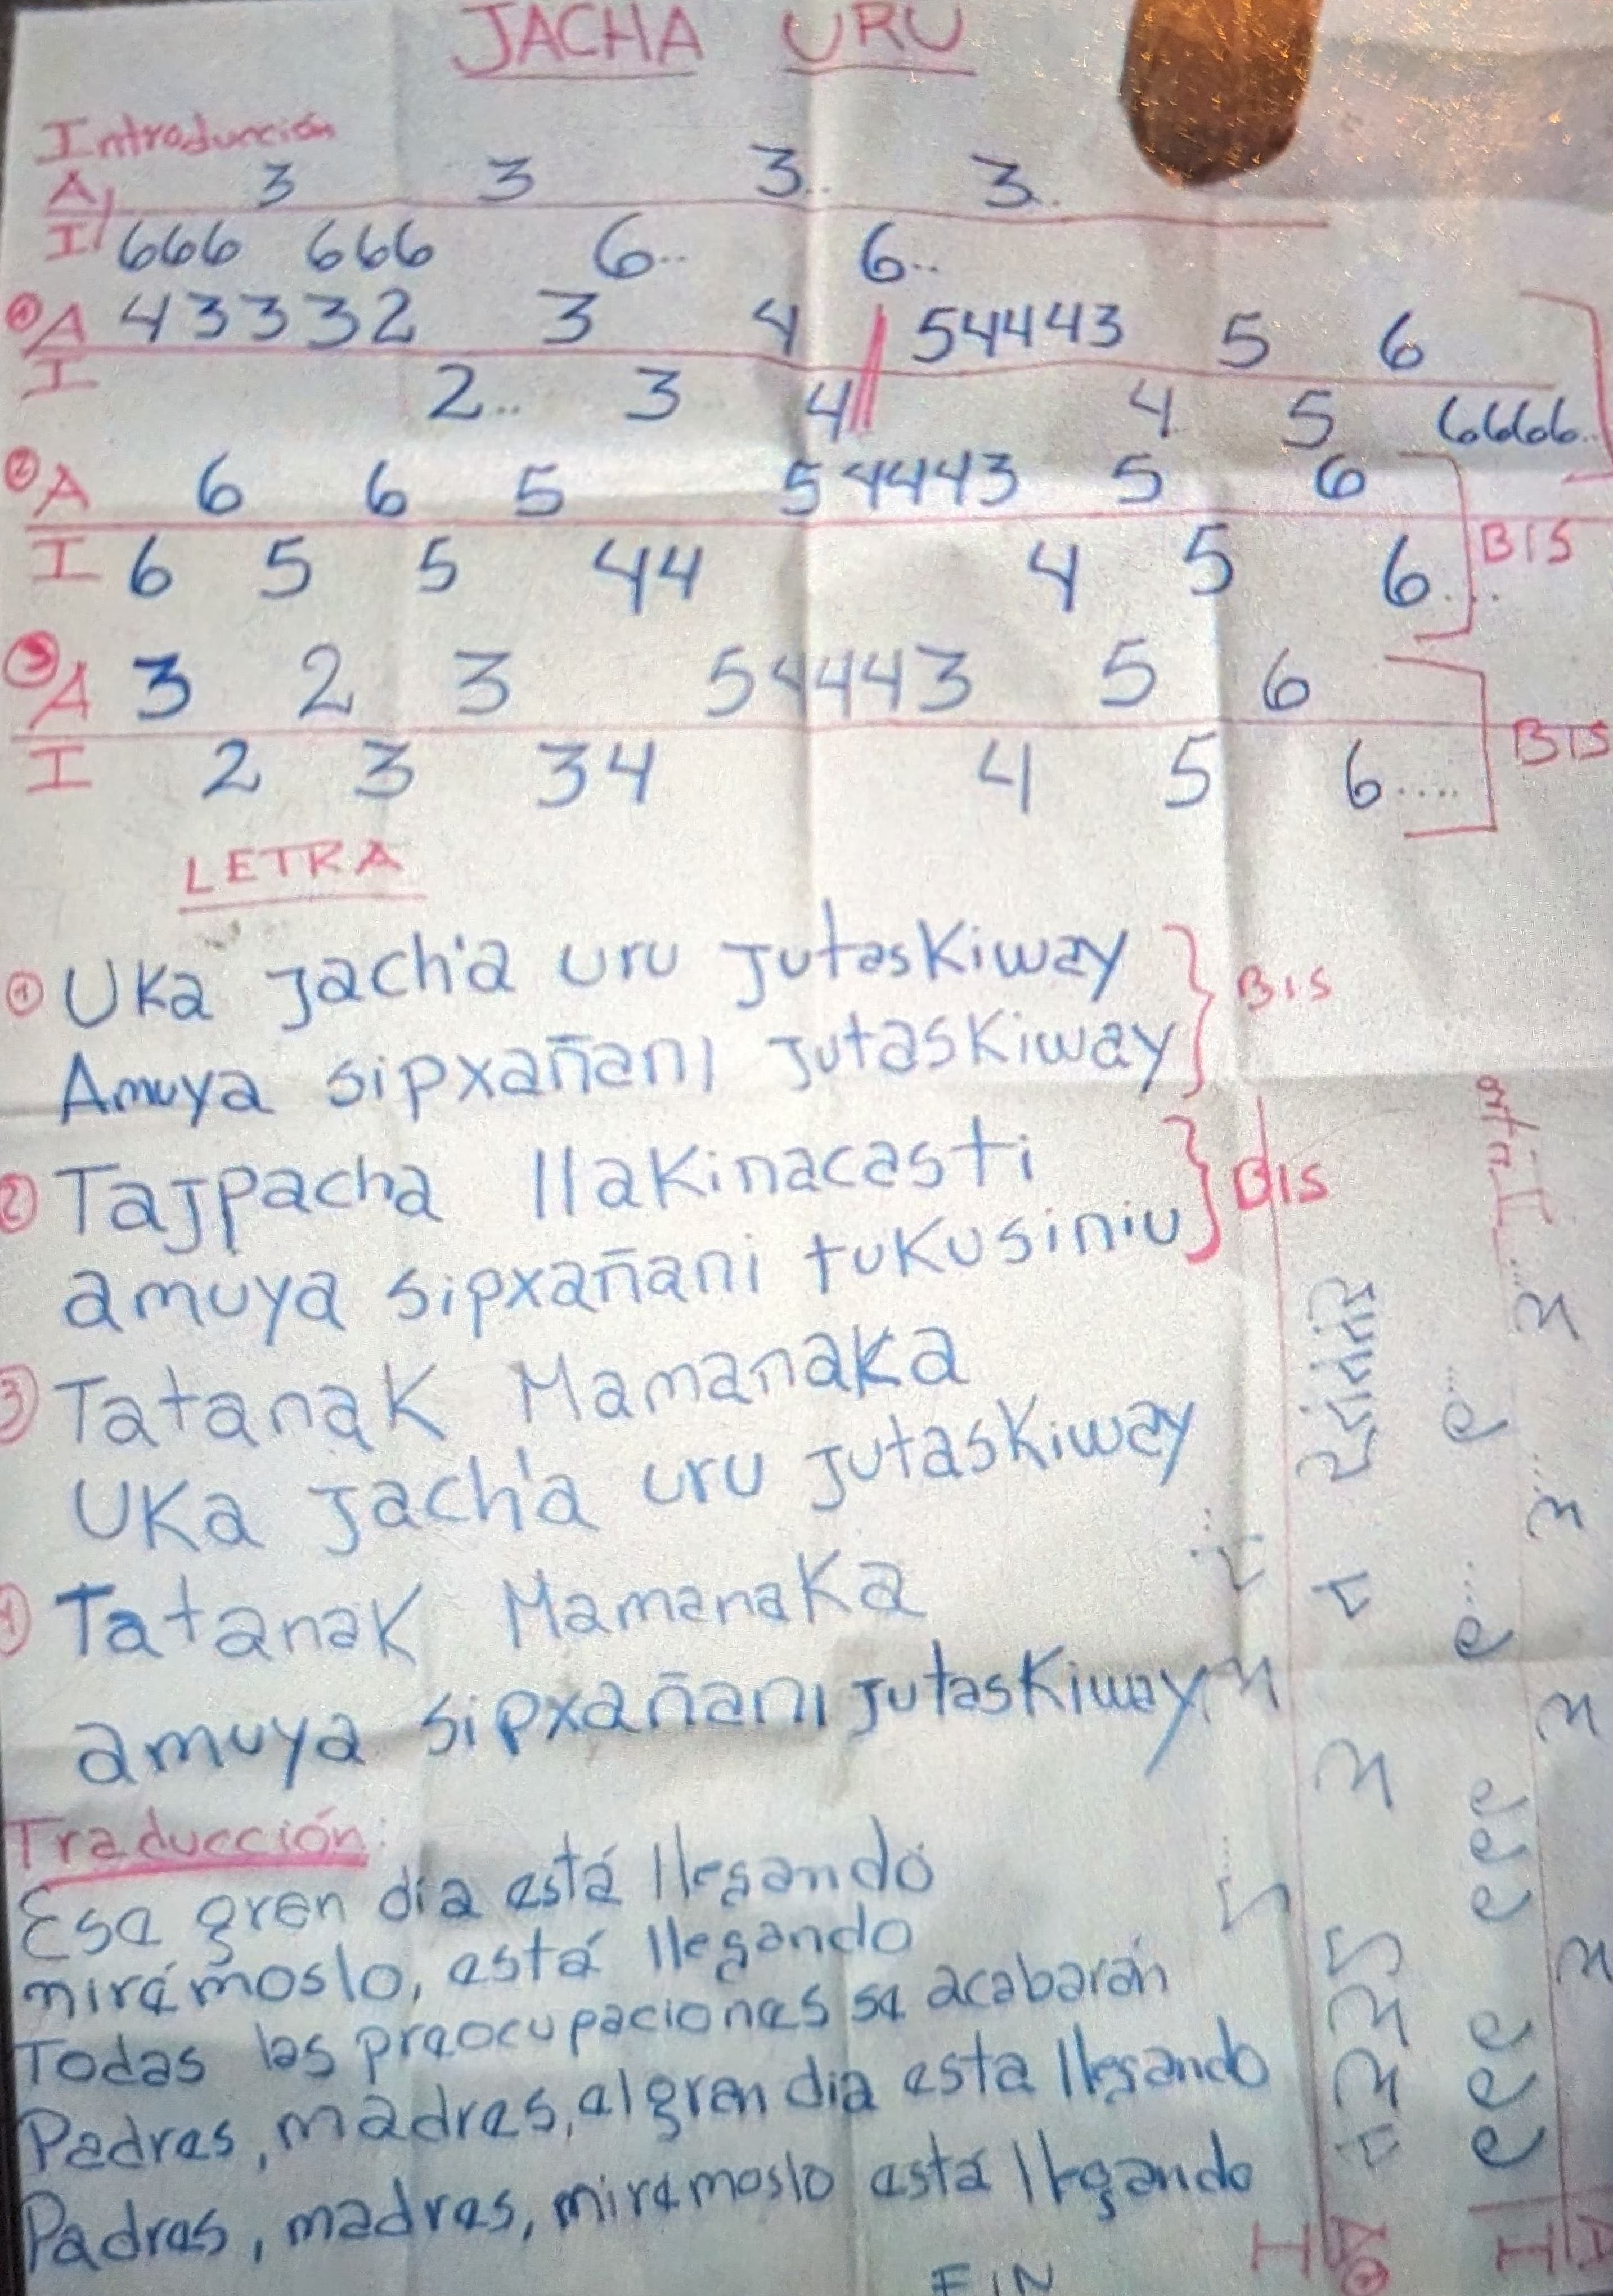 JACHA URU
Introducción
A 3 3 3.. 3..
I 666 666 6.. 6..
① A 4 3 3 3 3 2 3 4 // 5 4 4 4 4 3 5 6
I 2.. 3 4 // 4 5 6666..
② A 6 6 5 5 4 4 4 4 3 5 6
BIS
I 6 5 5 44 4 5 6....
③ A 3 2 3 5 4 4 4 4 3 5 6
BIS
I 2 3 34 4 5 6.....
LETRA
① Uka Jach'a uru Jutaskiway
BIS
Amuya sipxañani Jutaskiway
② Tajpacha llakinacasti
BIS
amuya sipxañani tukusiniu
③ Tatanak Mamanaka
Uka Jach'a uru Jutaskiway
④ Tatanak Mamanaka
amuya sipxañani Jutaskiway
Traducción:
Ese gran día está llegando
mirémoslo, está llegando
Todas las preocupaciones se acabarán
Padres, madres, el gran día esta llegando
Padres, madres, mirémoslo está llegando
FIN